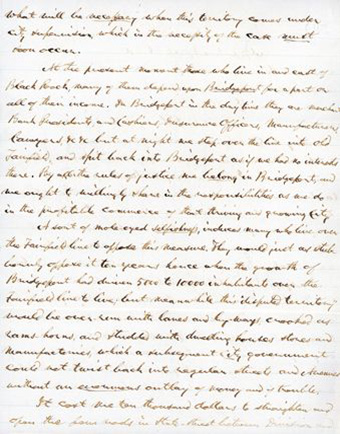 what will be necessary when this territory comes under
city supervision, which in the necessity of the case must
soon occur.
At the present moment those who live in and east of
Black Rock, many of them depend upon Bridgeport for a part or
all of their income. In Bridgeport in the daytime they are merchants
Bank Presidents and Cashiers, Insurance Officers, Manufacturers,
Lawyers, &c &c but at night we step over the line into old
Fairfield, and spit back into Bridgeport as if we had no interests
there. By all the rules of justice we belong in Bridgeport, and
we ought to willingly share in the responsibilities as we do
in the profitable commerce of that thriving and growing city.
A sort of mole eyed selfishness, induces many who live over
the Fairfield line to oppose this measure. They would just as
oppose it ten years hence when the growth of
Bridgeport had driven 5000 to 10000 inhabitants over the
Fairfield line to live, but meanwhile this disputed territory
would be over run with lanes and highways, crooked as
rams horns, and studded with dwelling houses stores and
Manufactories, which a subsequent city government
could not twist back into regular streets and Avenues
without an enormous outlay of money and trouble.
It cost me ten thousand dollars to straighten and
open the home roads in State Street between